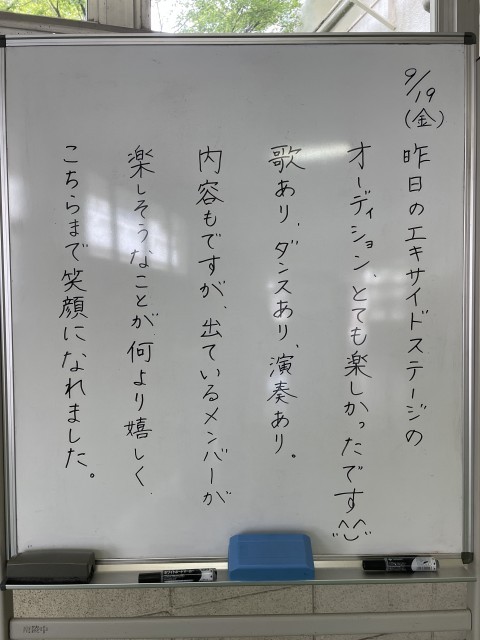 9/19(金) 昨日のエキサイドステージの
オーディション、とても楽しかったです^^
歌あり、ダンスあり、演奏あり。
内容もですが、出ているメンバーが
楽しそうなことが何より嬉しく
こちらまで笑顔になれました。